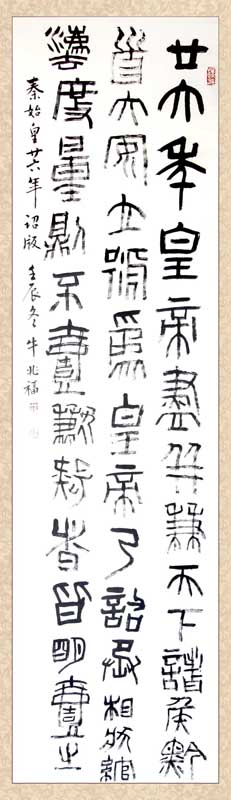 廿六年皇帝盡并兼天下諸侯黔
首大安立號為皇帝乃詔丞相狀綰
灋度量則不壹歉疑者皆明壹之
秦始皇廿六年詔版 壬辰冬 牛兆福